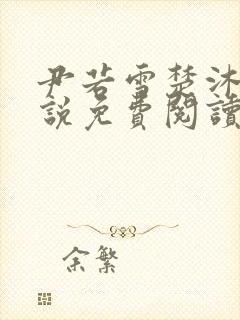 尹若雪楚沐
說免費閱讀
余繁